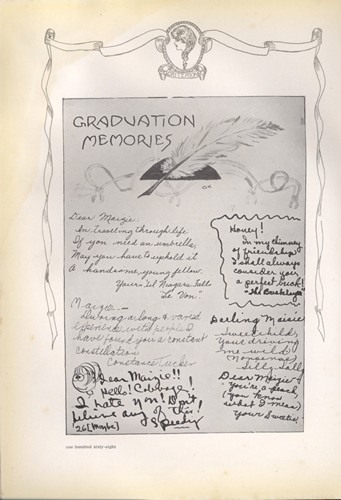 GRADUATION
MEMORIES
Dear Maizie
In traveling through life
If you need an umbrella,
May you have to uphold it
A handsome young fellow.
Yours til Niagara Falls
"Le Von"
Honey!
In my chimney
of friendship
I shall always
consider you
a perfect brick!
Maizie —
During a long & varied
experience with people I
have found you a constant
constellation
Constance Tucker
Darling Maizie
Sweet child,
Your driving
me wild!
(Nonsense)
Silly Sally
Dear Maizie!!
Hello! College!
I hate you! Don't
believe any of this!
'26 [Maybe] Speedy
Dear Maizie
You're a pearl,
(you know
what I mean)
Your Sweetie
one hundred sixty-eight